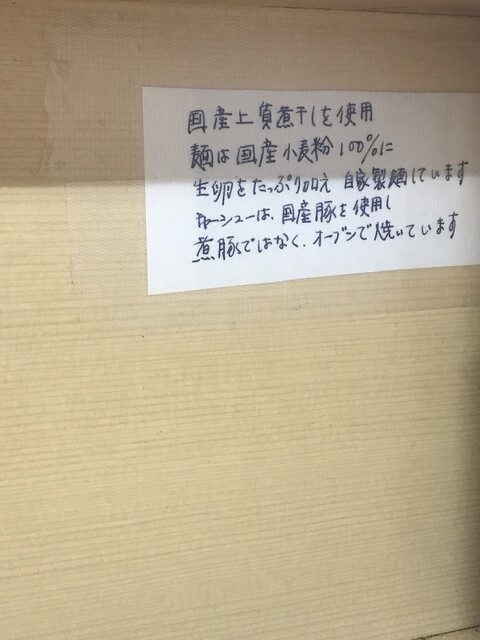 国産上質煮干しを使用
麺は国産小麦粉100%に
生卵をたっぷり加え 自家製麺しています
チャーシューは、国産豚を使用し
煮豚ではなく、オーブンで焼いています